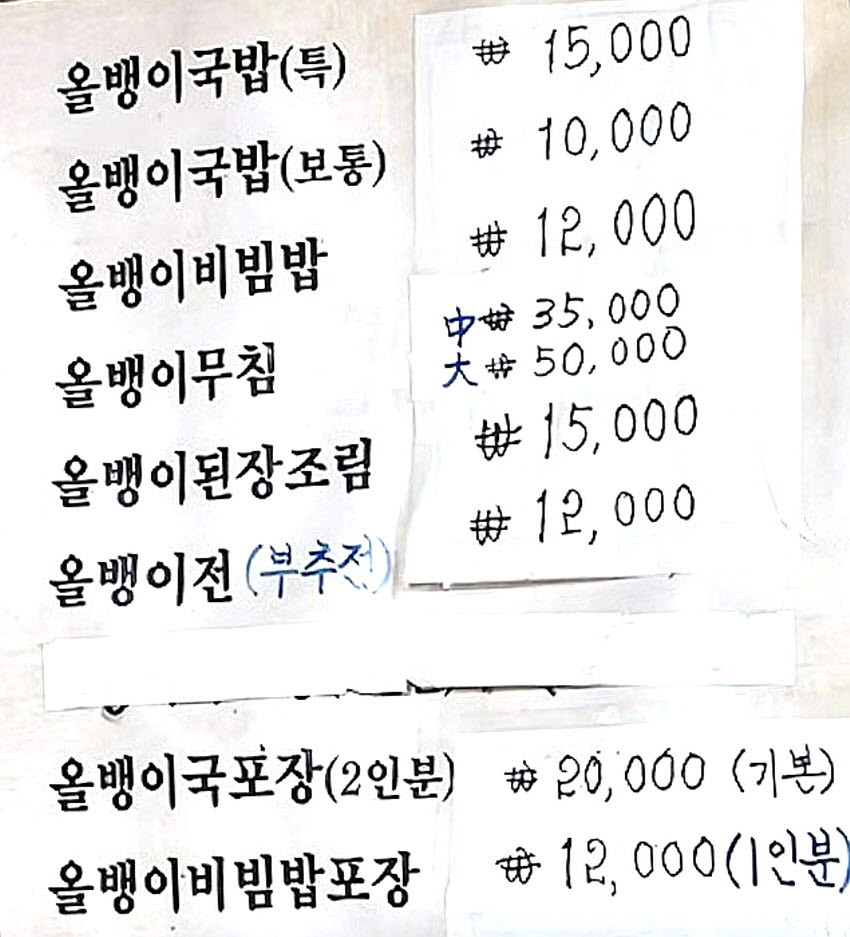 올뱅이국밥(특) ₩ 15,000
올뱅이국밥(보통) ₩ 10,000
올뱅이비빔밥 ₩ 12,000
올뱅이무침 中 ₩ 35,000
大 ₩ 50,000
올뱅이된장조림 ₩ 15,000
올뱅이전(부추전) ₩ 12,000
올뱅이국포장(2인분) ₩ 20,000 (기본)
올뱅이비빔밥포장 ₩ 12,000(1인분)